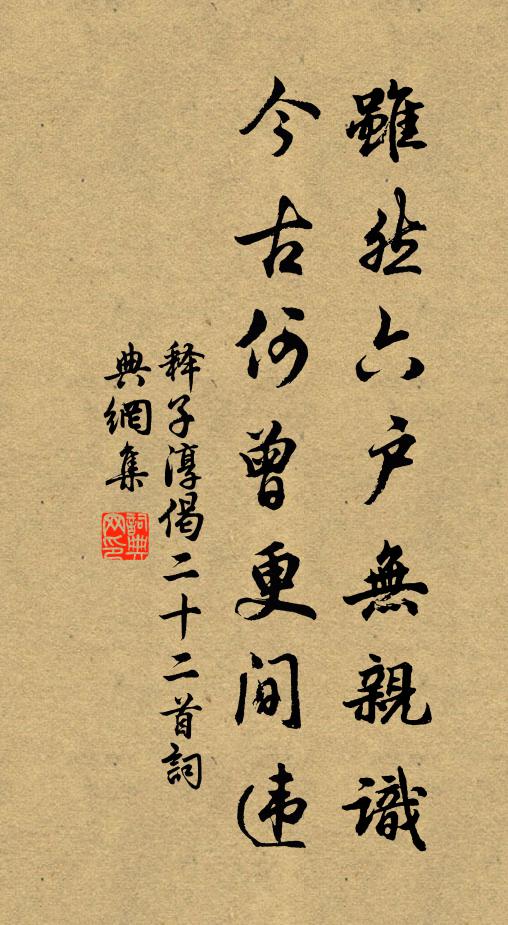 雖然六户無親識
今古何曾更间违
释子淳偈二十二首詞
典網集
詞典
网印